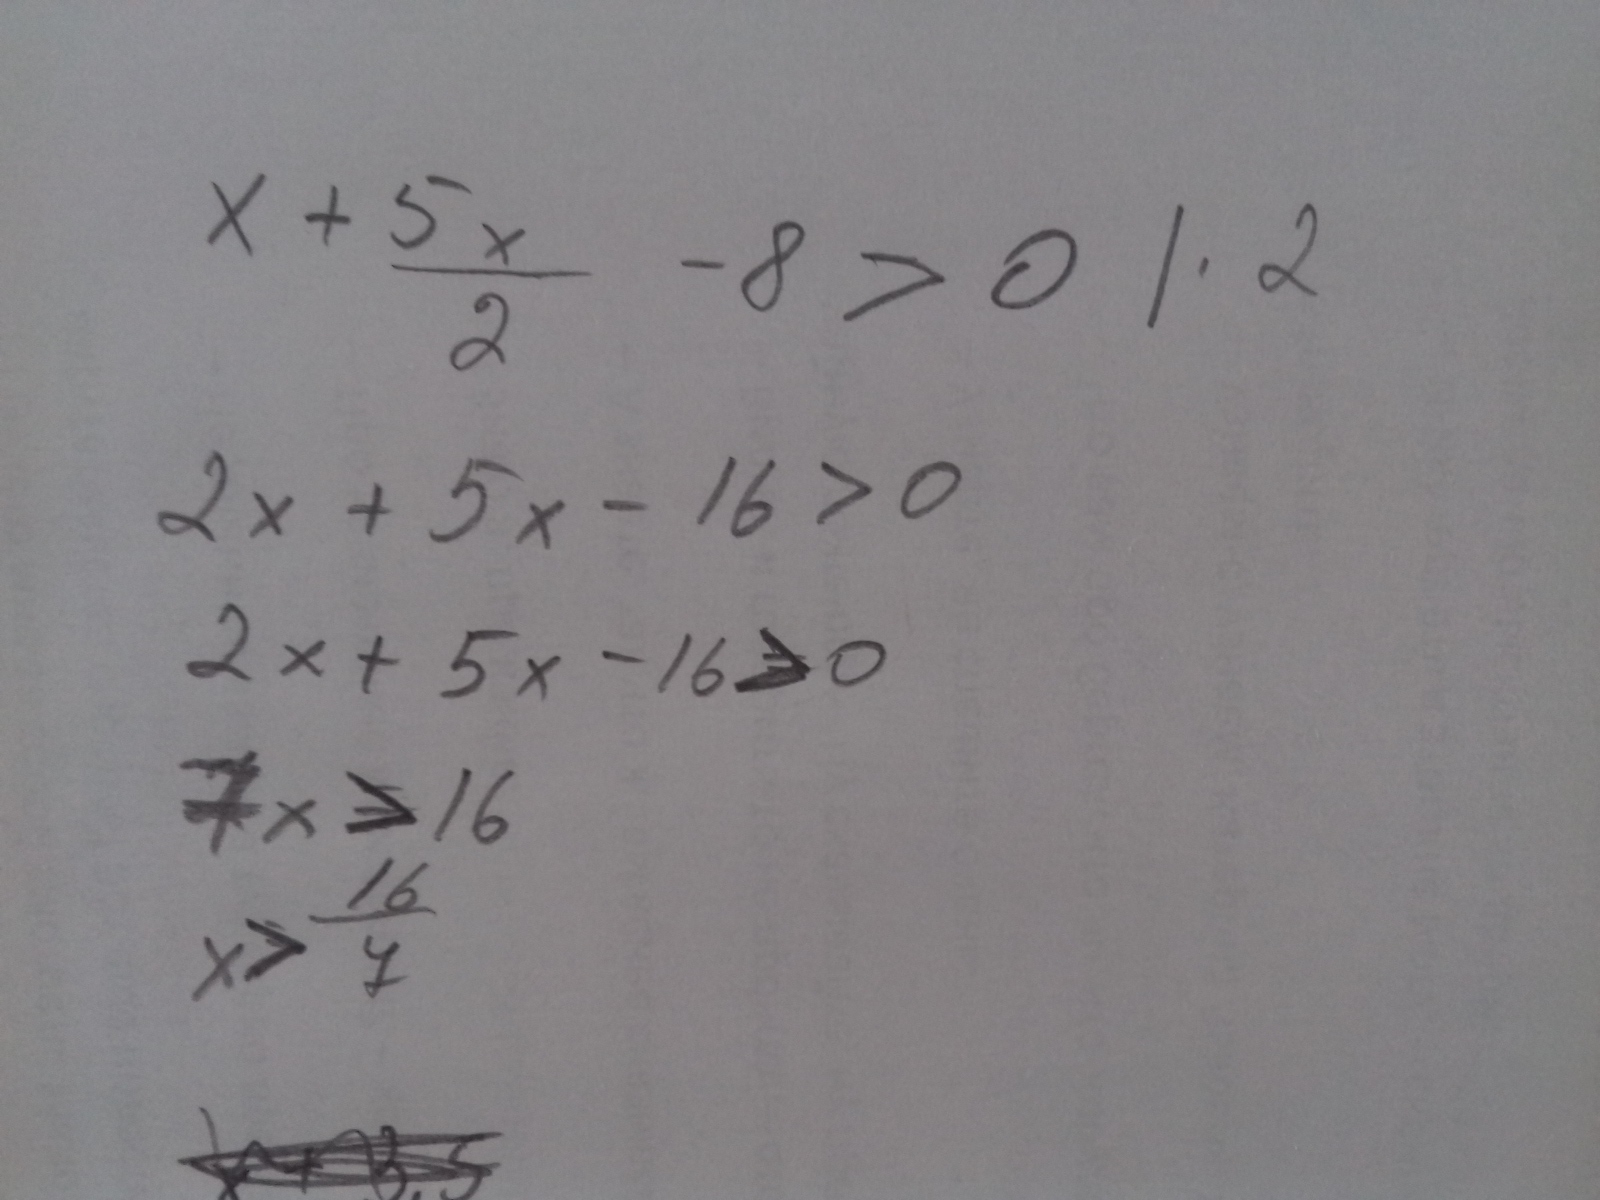 x + 5x/2 - 8 > 0 /· 2
2x + 5x - 16 > 0
2x + 5x - 16 > 0
7x > 16
x > 16/7